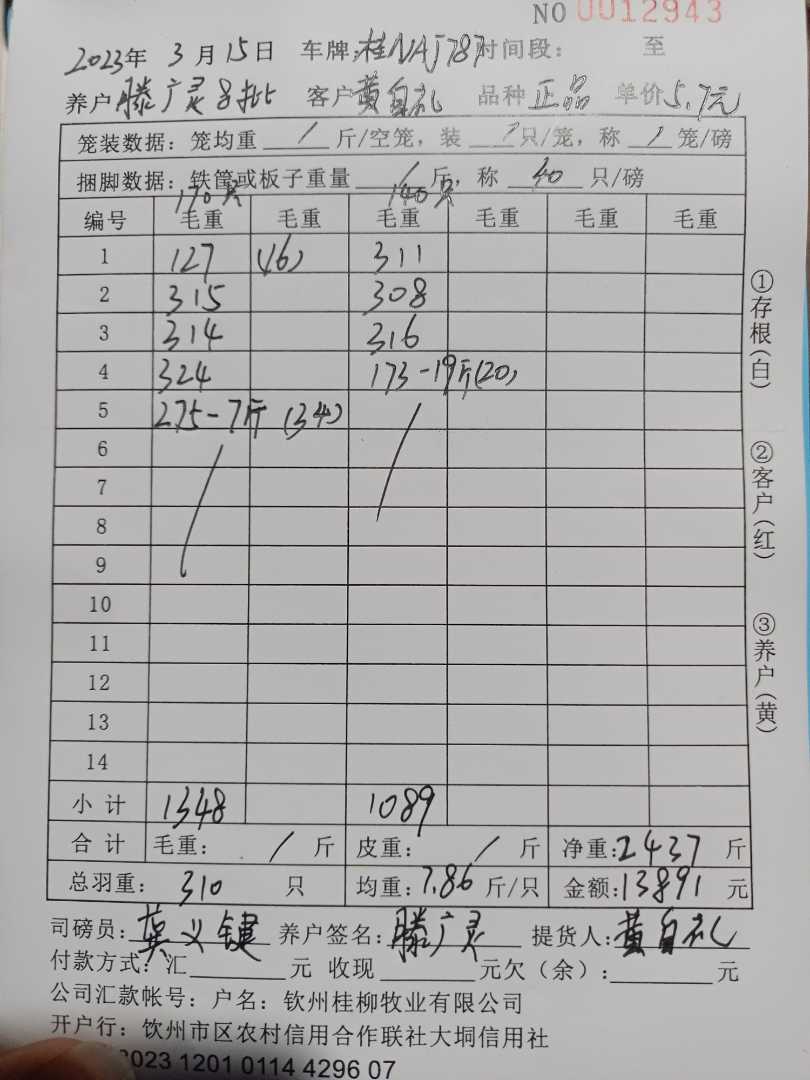 NO 0012943
2023年 3月15日 车牌:桂NAJ787 时间段: 至
养户 滕广灵8批 客户 黄自礼 品种 正品 单价 5.7元
笼装数据:笼均重 / 斤/空笼,装 / 只/笼,称 / 笼/磅
捆脚数据:铁筐或板子重量 / 斤,称 40 只/磅
170只 140只
编号 毛重 毛重 毛重 毛重 毛重 毛重
1 127 (16) 311
2 315 308
3 314 316
4 324 173-19斤(20)
5 275-7斤 (34)
6
7
8
9
10
11
12
13
14
小计 1348 1089
合计 毛重: / 斤 皮重: / 斤 净重:2437 斤
总羽重: 310 只 均重:7.86 斤/只 金额:13891 元
司磅员:莫义键 养户签名:滕广灵 提货人:黄自礼
付款方式:汇 元 收现 元欠(余): 元
公司汇款帐号:户名:钦州桂柳牧业有限公司
开户行:钦州市区农村信用合作联社大垌信用社
2023 1201 0114 4296 07
①存根(白)
②客户(红)
③养户(黄)